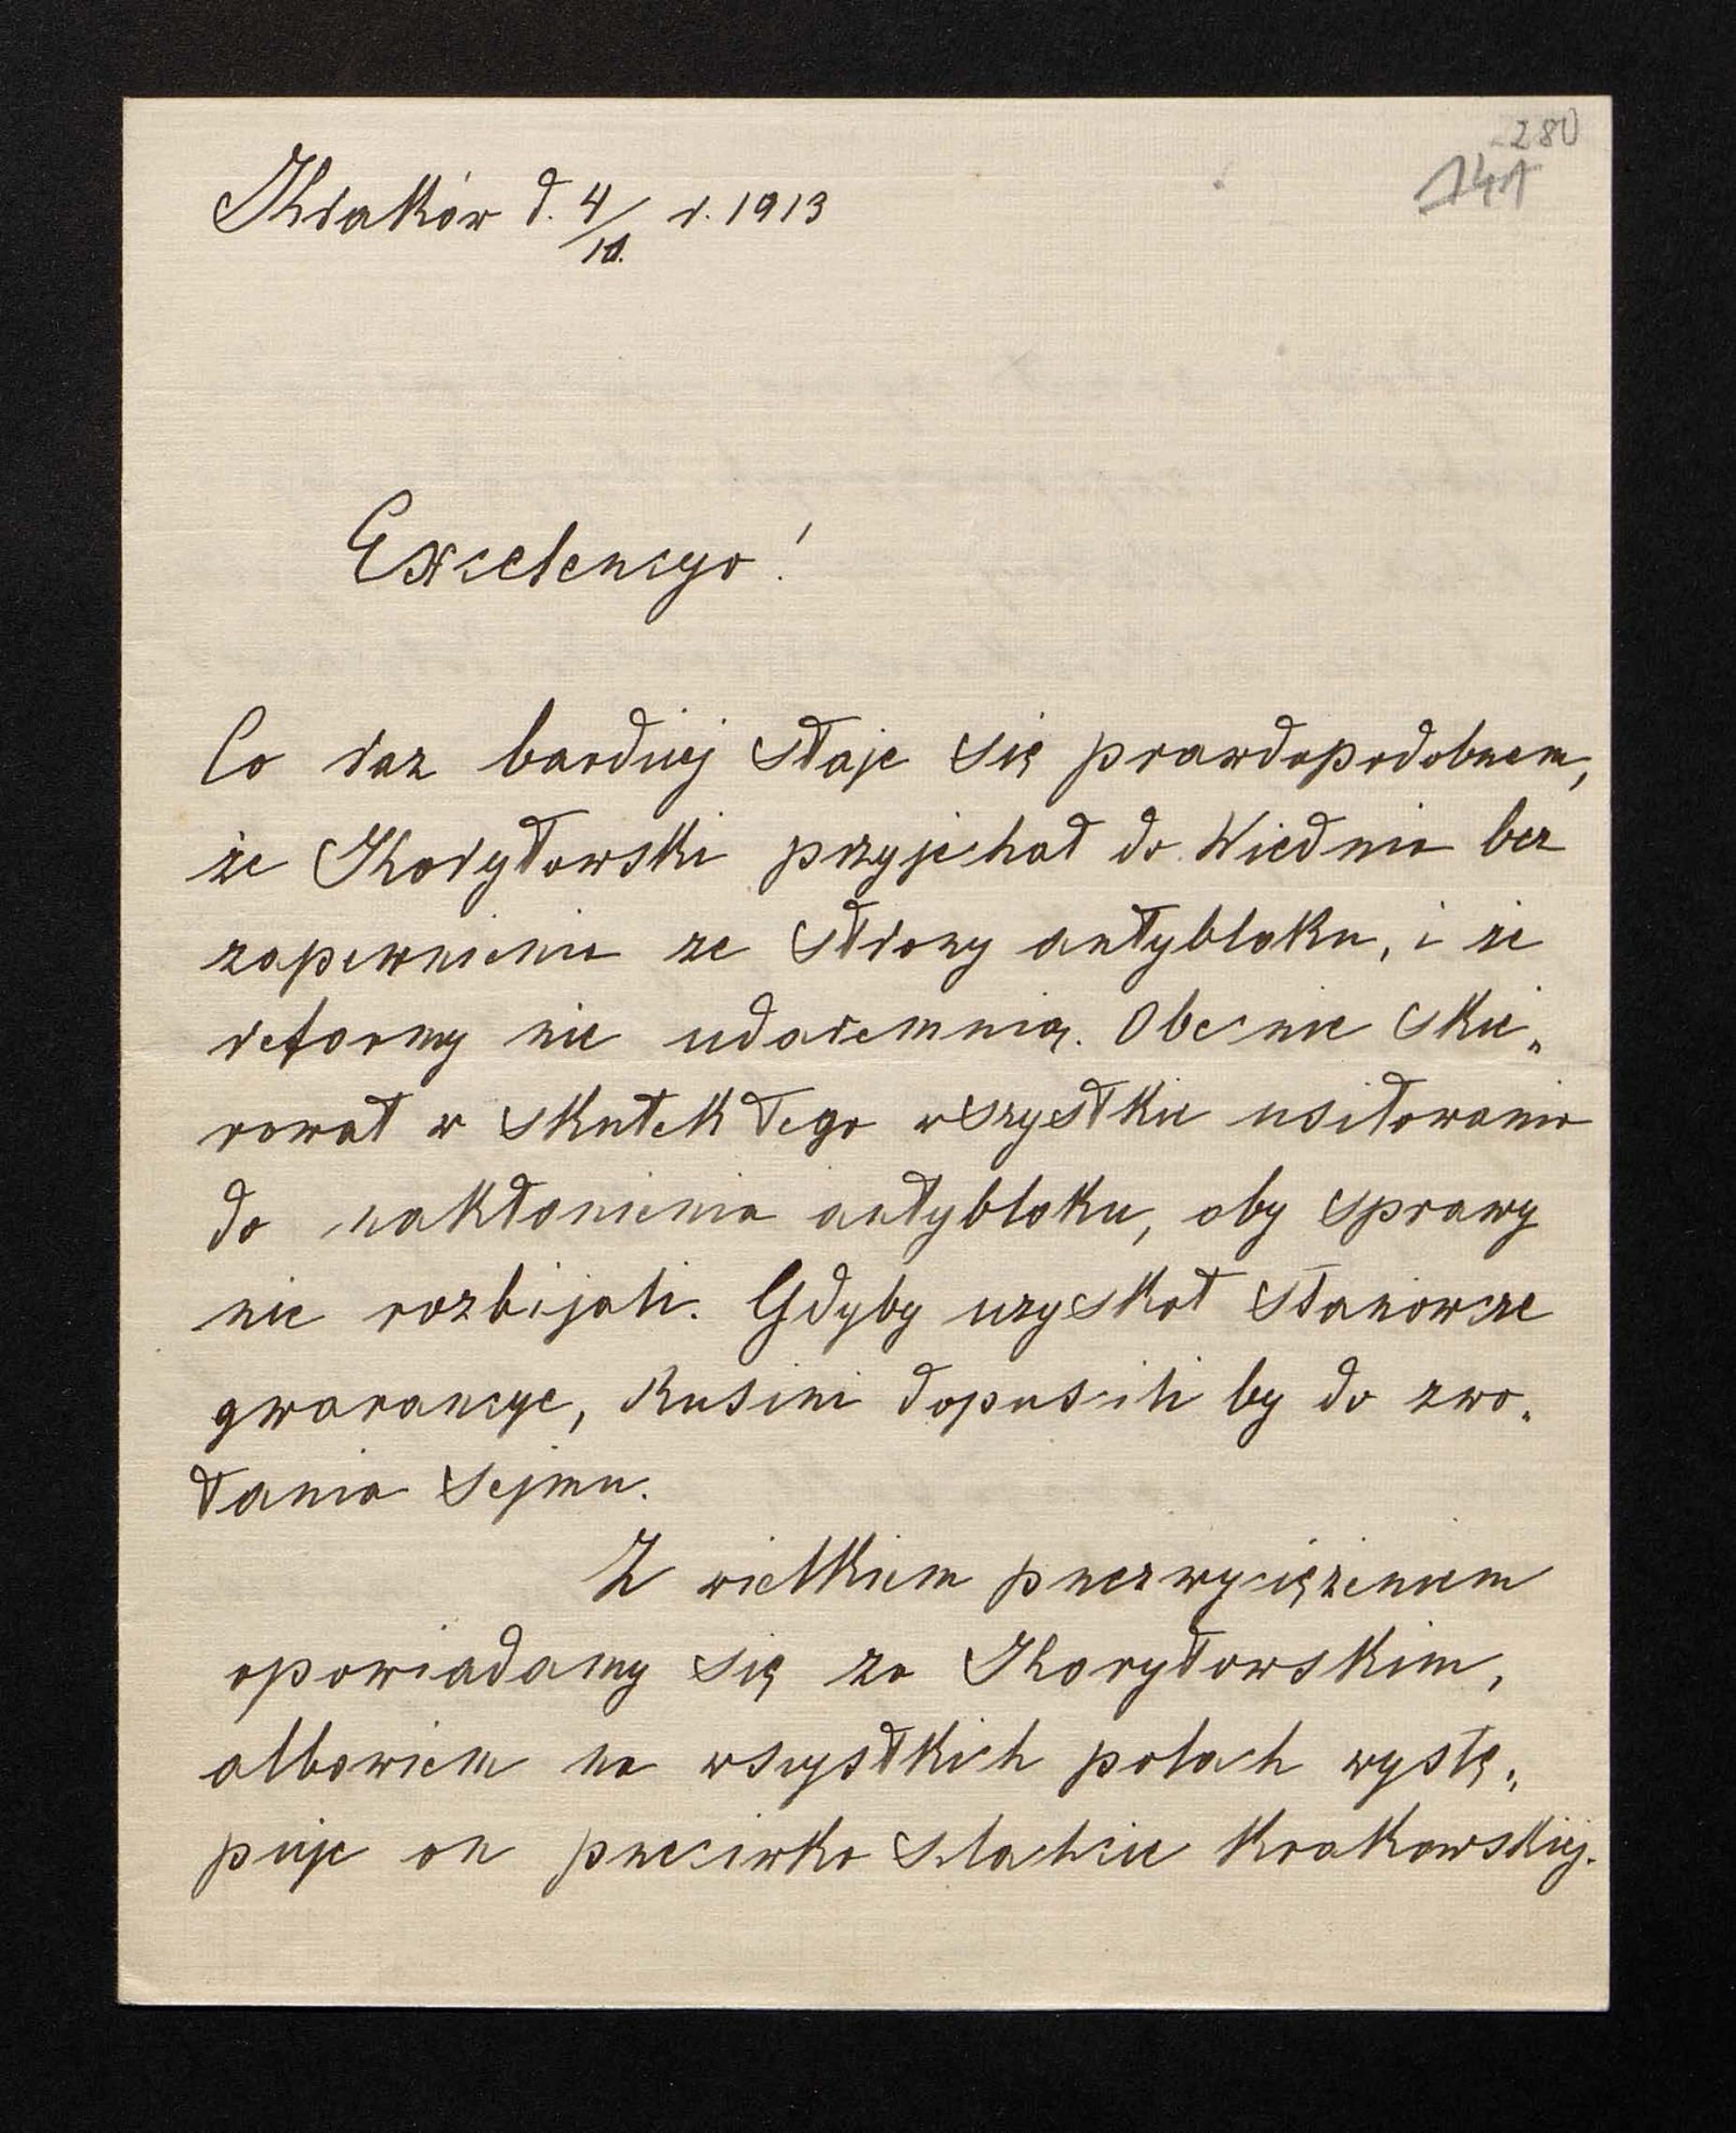 280
141
Kraków d. 4/10. r. 1913
Excelencyo!
Co raz bardziej staje się prawdopodobnem,
że Korytowski przyjechał do Wiednia bez
zapewnienia ze strony antybloku, i że
reformy nie udaremnią. Obecnie skie„
rował w skutek tego wszystkie usiłowania
do nakłonienia antybloku, aby sprawy
nie rozbijali. Gdyby uzyskał stanowcze
gwarancye, Rusini dopuścili by do zwo„
łania Sejmu.
Z wielkiem przezwyciężeniem
opowiadamy się za Korytowskim,
albowiem na wszystkich polach wystę„
puje on przeciwko szlachcie Krakowskiej.